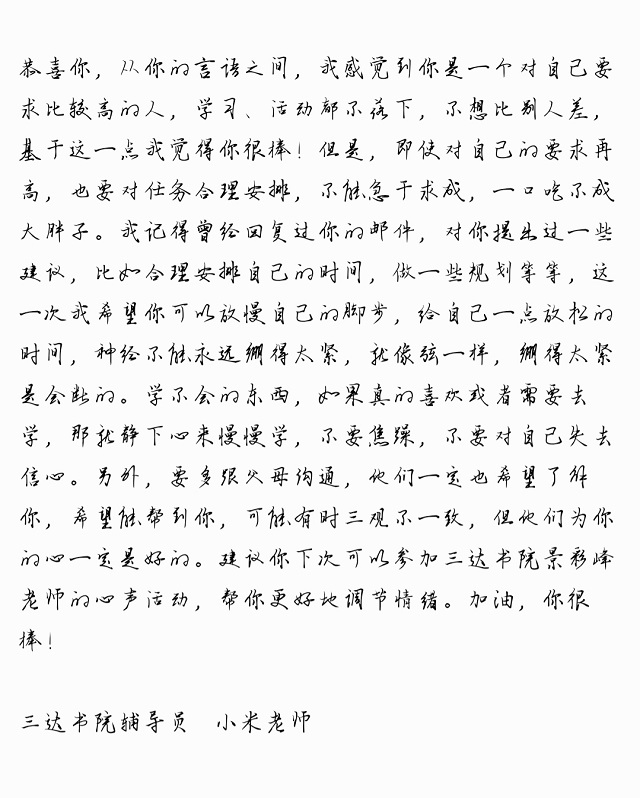 恭喜你，从你的言语之间，我感觉到你是一个对自己要
求比较高的人，学习、活动都不落下，不想比别人差，
基于这一点我觉得你很棒！但是，即使对自己的要求再
高，也要对任务合理安排，不能急于求成，一口吃不成
大胖子。我记得曾经回复过你的邮件，对你提出过一些
建议，比如合理安排自己的时间，做一些规划等等，这
一次我希望你可以放慢自己的脚步，给自己一点放松的
时间，神经不能永远绷得太紧，就像弦一样，绷得太紧
是会断的。学不会的东西，如果真的喜欢或者需要去
学，那就静下心来慢慢学，不要焦躁，不要对自己失去
信心。另外，要多跟父母沟通，他们一定也希望了解
你，希望能帮到你，可能有时三观不一致，但他们为你
的心一定是好的。建议你下次可以参加三达书院景彩峰
老师的心声活动，帮你更好地调节情绪。加油，你很
棒！
三达书院辅导员 小米老师